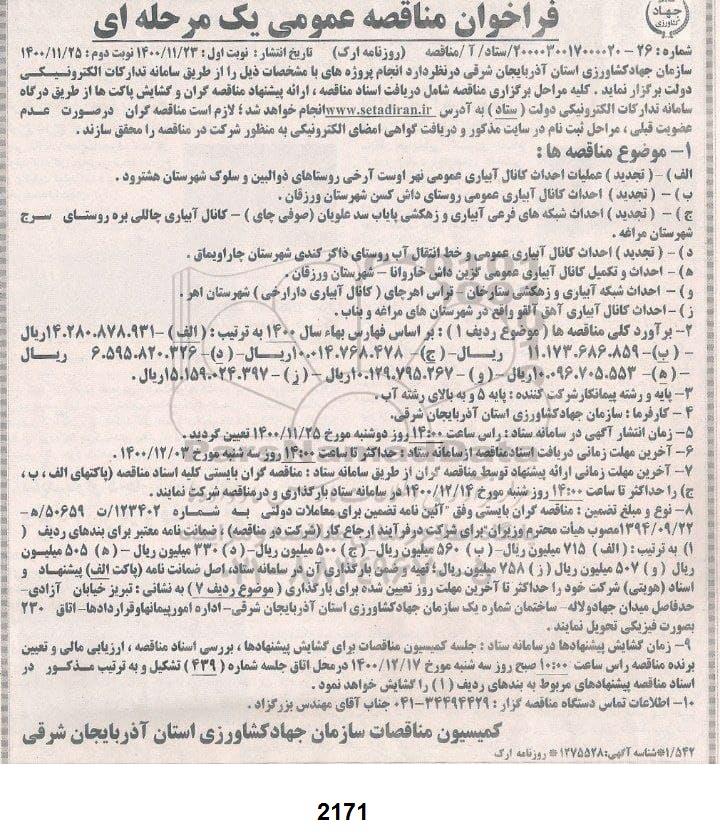 جهاد
کشاورزی
فراخوان مناقصه عمومی یک مرحله ای
شماره : ۲۶ - ۲۰۰۰۰۳۰۰۱۷۰۰۰۰۲۰/ستاد/ آ /مناقصه (روزنامه ارک) تاریخ انتشار : نوبت اول : ۱۴۰۰/۱۱/۲۳ نوبت دوم : ۱۴۰۰/۱۱/۲۵
سازمان جهادکشاورزی استان آذربایجان شرقی درنظردارد انجام پروژه های با مشخصات ذیل را از طریق سامانه تدارکات الکترونیـکی
دولت برگزار نماید . کلیه مراحل برگزاری مناقصه شامل دریافت اسناد مناقصه ، ارائه پیشنهاد مناقصه گران و گشایش پاکت ها از طریق درگاه
سامانه تدارکات الکترونیکی دولت ( ستاد ) به آدرس www.setadiran.ir انجام خواهد شد ؛ لازم است مناقصه گران درصورت عدم
عضویت قبلی ، مراحل ثبت نام در سایت مذکور و دریافت گواهی امضای الکترونیکی به منظور شرکت در مناقصه را محقق سازند .
۱- موضوع مناقصه ها :
الف )- ( تجدید ) عملیات احداث کانال آبیاری عمومی نهر اوست آرخی روستاهای ذوالبین و سلوک شهرستان هشترود .
ب )- ( تجدید ) احداث کانال آبیاری عمومی روستای داش کسن شهرستان ورزقان .
ج )- ( تجدید ) احداث شبکه های فرعی آبیاری و زهکشی پایاب سد علویان (صوفی چای ) – کانال آبیاری چاللی بره روستـای سرج
شهرستان مراغه .
د )- ( تجدید ) احداث کانال آبیاری عمومی و خط انتقال آب روستای ذاکر کندی شهرستان چاراویماق .
ه )- احداث و تکمیل کانال آبیاری عمومی گزین داش خاروانا – شهرستان ورزقان .
و )- احداث شبکه آبیاری و زهکشی ستارخان – راس اهرچای ( کانال آبیاری دارارخی ) شهرستان اهر .
ز )- احداث کانال آبیاری آهق القو واقع در شهرستان های مراغه و بناب .
۲- برآورد کلی مناقصه ها ( موضوع ردیف ۱ ) : بر اساس فهارس بهاء سال ۱۴۰۰ به ترتیب : ( الف )- ۱۴.۲۸۰.۸۷۸.۹۳۱ریال
– (ب)- ۱۱.۱۷۳.۶۸۶.۸۵۹ ریـال –( ج)- ۱۰.۰۱۴.۷۶۸.۴۷۸ریـال–( د )- ۶.۵۹۵.۸۲۰.۳۲۶ ریـال
–( ه )- ۱۰.۰۹۶.۷۰۵.۵۵۳ریال–( و )- ۱۰.۱۲۹.۷۹۵.۲۶۷ریال – ( ز )- ۱۵.۱۵۹.۰۲۴.۳۹۷ریال .
۳- پایه و رشته پیمانکارشرکت کننده : پایه ۵ و به بالای رشته آب .
۴- کارفرما : سازمان جهادکشاورزی استان آذربایجان شرقی.
۵- زمان انتشار آگهی در سامانه ستاد : راس ساعت ۱۴:۰۰ روز دوشنبه مورخ ۱۴۰۰/۱۱/۲۵ تعیین گردید .
۶- آخرین مهلت زمانی دریافت اسنادمناقصه ازسامانه ستاد : حداکثر تا ساعت ۱۴:۰۰ روز سه شنبه مورخ ۱۴۰۰/۱۲/۰۳ .
۷- آخرین مهلت زمانی ارائه پیشنهاد توسط مناقصه گران از طریق سامانه ستاد : مناقصه گران بایستی کلیه اسناد مناقصه (پاکتهای الف ، ب ،
ج) را حداکثر تا ساعت ۱۴:۰۰ روز شنبه مورخ ۱۴۰۰/۱۲/۱۴ در سامانه ستاد بارگذاری و درمناقصه شرکت نمایند .
۸- نوع و مبلغ تضمین : مناقصه گران بایستی وفق "آئین نامه تضمین برای معاملات دولتی به شماره ۱۲۳۴۰۲/ت ۵۰۶۵۹/ه-
۱۳۹۴/۰۹/۲۲مصوب هیأت محترم وزیران"برای شرکت درفرآیند ارجاع کار (شرکت در مناقصه) ؛ ضمانت نامه معتبر برای بندهای ردیف (
۱) به ترتیب : (الف ) ۷۱۵ میلیون ریال–( ب) ۵۶۰ میلیون ریال–( ج) ۵۰۰ میلیون ریال–( د) ۳۳۰ میلیون ریال – ( ه) ۵۰۵ میلیون
ریال ( و ) ۵۰۷ میلیون ریال ( ز ) ۷۵۸ میلیون ریال؛ تهیه و ضمن بارگذاری آن در سامانه ستاد، اصل ضمانت نامه (پاکت الف) پیشنهاد و
اسناد (هویتی) شرکت خود را حداکثر تا آخرین مهلت روز تعیین شده برای بارگذاری ( موضوع ردیف ۷ ) به نشانی : تبریز خیابان آزادی-
حدفاصل میدان جهادولاله- ساختمان شماره یک سازمان جهادکشاورزی استان آذربایجان شرقی- اداره امورپیمانهاوقراردادها- اتاق ۲۳۰
بصورت فیزیکی تحویل نمایند .
۹- زمان گشایش پیشنهادها درسامانه ستاد : جلسه کمیسیون مناقصات برای گشایش پیشنهادها ، بررسی اسناد مناقصه ، ارزیابی مالی و تعیین
برنده مناقصه راس ساعت ۱۰:۰۰ صبح روز سه شنبه مورخ ۱۴۰۰/۱۲/۱۷ درمحل اتاق جلسه شماره ( ۴۳۹ ) تشکیل و به ترتیب مذکـور در
اسناد مناقصه پیشنهادهای مربوط به بندهای ردیف ( ۱ ) را گشایش خواهد نمود .
۱۰- اطلاعات تماس دستگاه مناقصه گزار : ۳۴۴۹۴۴۲۹-۰۴۱ جناب آقای مهندس بزرگزاد .
کمیسیون مناقصات سازمان جهادکشاورزی استان آذربایجان شرقی
۱/۵۴۲*شناسه آگهی:۱۲۷۵۵۲۸* روزنامه ارک
2171